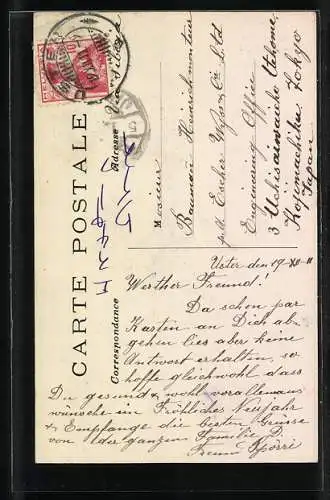 CARTE POSTALE
Correspondance
Adresse
Monsieur
Baumann Heinrich monteur
p.a. Escher Wyss & Cie Ltd
Engineering Office
3 Uchisaiwaicho Itchome
Kojimachiku Tokyo
Japan
Uster den 17-XII-11
Werther Freund!
Da schon par
Karten an Dich ab-
gehen lies aber keine
Antwort erhalten, so
hoffe gleichwohl dass
Du gesund & wohl vorallemaus
wünsche ein Fröhliches Neujahr
& Empfange die besten Grüsse
von der ganzen Familie D.
Freund Spörri